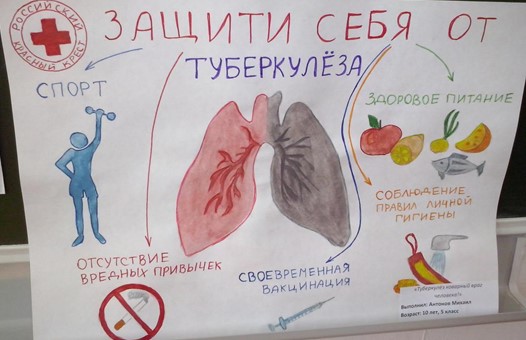 РОССИЙСКИЙ
КРАСНЫЙ КРЕСТ
ЗАЩИТИ СЕБЯ ОТ
ТУБЕРКУЛЁЗА
СПОРТ
ЗДОРОВОЕ ПИТАНИЕ
СОБЛЮДЕНИЕ
ПРАВИЛ ЛИЧНОЙ
ГИГИЕНЫ
ОТСУТСТВИЕ
ВРЕДНЫХ ПРИВЫЧЕК
СВОЕВРЕМЕННАЯ
ВАКЦИНАЦИЯ
«Туберкулез коварный враг
человека!»
Выполнил: Антонов Михаил
Возраст: 10 лет, 3 класс